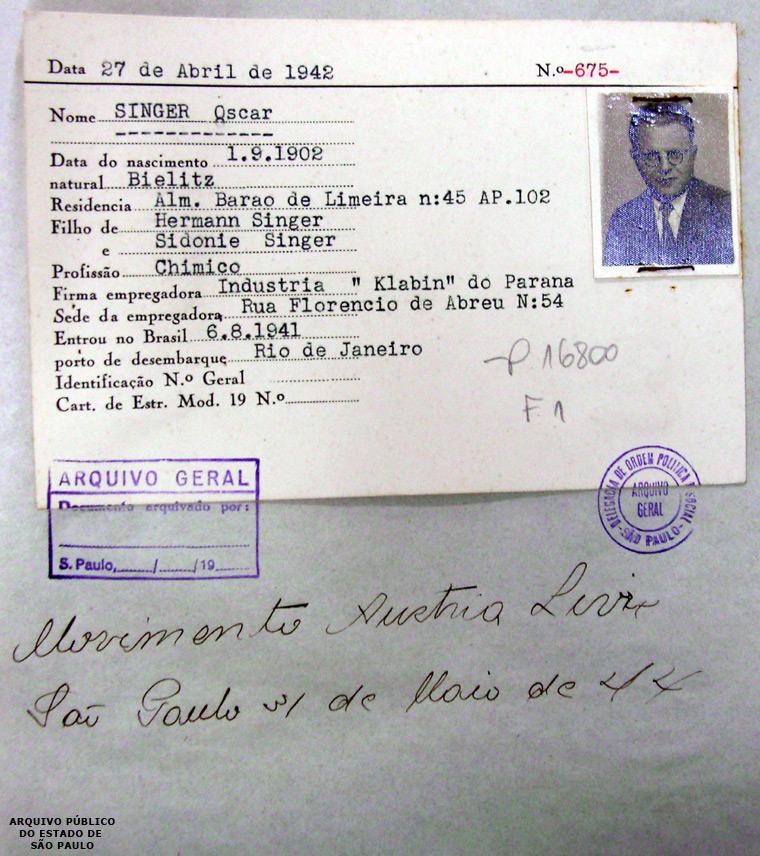 Data 27 de Abril de 1942 N.º-675-
Nome SINGER Oscar
Data do nascimento 1.9.1902
natural Bielitz
Residencia Alm. Barao de Limeira n:45 AP.102
Filho de Hermann Singer
e Sidonie Singer
Profissão Chimico
Firma empregadora Industria " Klabin" do Parana
Sede da empregadora Rua Florencio de Abreu N:54
Entrou no Brasil 6.8.1941
porto de desembarque Rio de Janeiro
Identificação N.º Geral
Cart. de Estr. Mod. 19 N.º
P 16800
F 1
ARQUIVO GERAL
Documento arquivado por:
S. Paulo, / /19
DELEGACIA DE ORDEM POLITICA E SOCIAL
ARQUIVO
GERAL
-SÃO PAULO-
Movimento Austria Livre
São Paulo 31 de Maio de 44
ARQUIVO PÚBLICO
DO ESTADO DE
SÃO PAULO